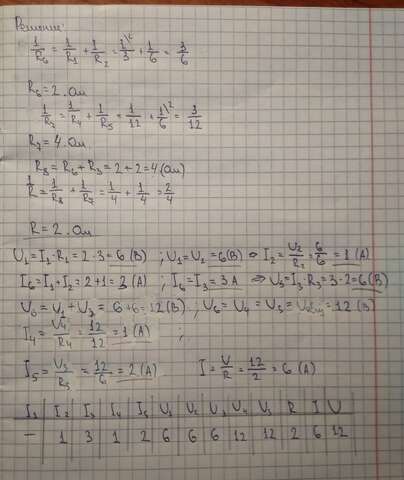 Решение
1/R₆ = 1/R₁ + 1/R₂ = 1\²/3 + 1/6 = 3/6
R₆ = 2 Ом
1/R₇ = 1/R₄ + 1/R₅ = 1/12 + 1\²/6 = 3/12
R₇ = 4 Ом
R₈ = R₆ + R₃ = 2 + 2 = 4 (Ом)
1/R = 1/R₈ + 1/R₇ = 1/4 + 1/4 = 2/4
R = 2 Ом
U₁ = I₁ · R₁ = 2 · 3 = 6 (В) ; U₁ = U₂ = 6 (В) ⇒ I₂ = U₂/R₂ = 6/6 = 1 (А)
I₆ = I₁ + I₂ = 2 + 1 = 3 (А) ; I₆ = I₃ = 3 А ⇒ U₃ = I₃ · R₃ = 3 · 2 = 6 (В)
U₆ = U₁ + U₃ = 6 + 6 = 12 (В) ; U₆ = U₄ = U₅ = Uобщ = 12 (В)
I₄ = U₄/R₄ = 12/12 = 1 (А) ;
I₅ = U₅/R₅ = 12/6 = 2 (А) I = U/R = 12/2 = 6 (А)
I₁ I₂ I₃ I₄ I₅ U₁ U₂ U₃ U₄ U₅ R I U
— 1 3 1 2 6 6 6 12 12 2 6 12